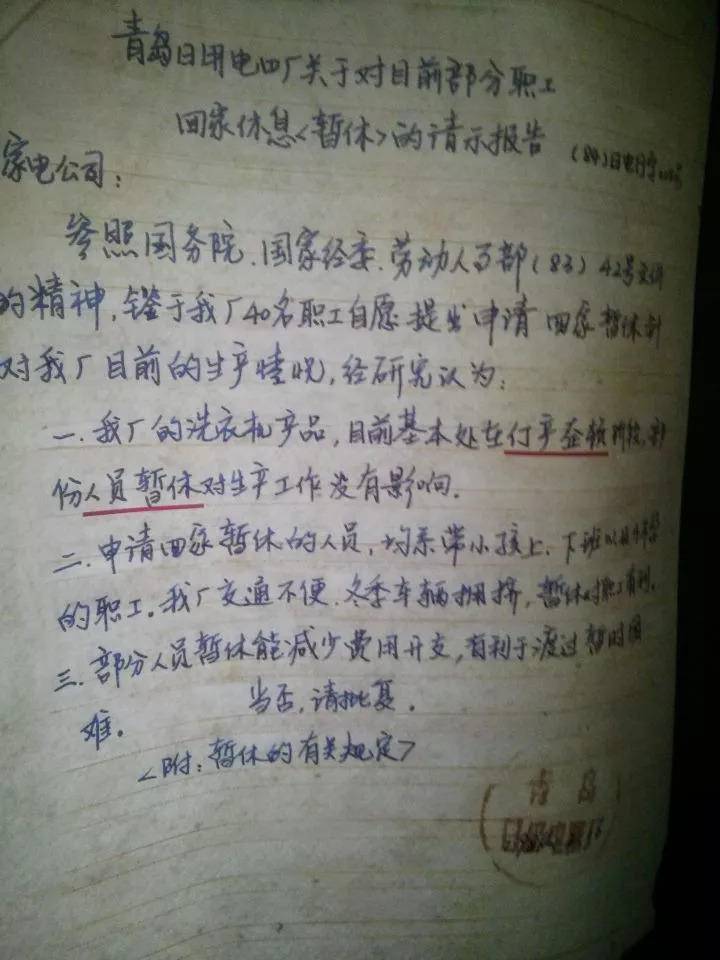 青岛日用电四厂关于对目前部分职工
回家休息<暂休>的请示报告
(84)日电行字
家电公司:
参照国务院、国家经委、劳动人事部(83)42号文件
的精神,鉴于我厂40名职工自愿提出申请回家暂休
对我厂目前的生产情况,经研究认为:
一、我厂的洗衣机产品,目前基本处在停产整顿阶段,部
份人员暂休对生产工作没有影响.
二、申请回家暂休的人员,均系带小孩上、下班
的职工。我厂交通不便.冬季车辆拥挤,暂休对职工有利.
三、部分人员暂休能减少费用开支,有利于渡过暂时困
难。
当否,请批复.
<附:暂休的有关规定>
青岛